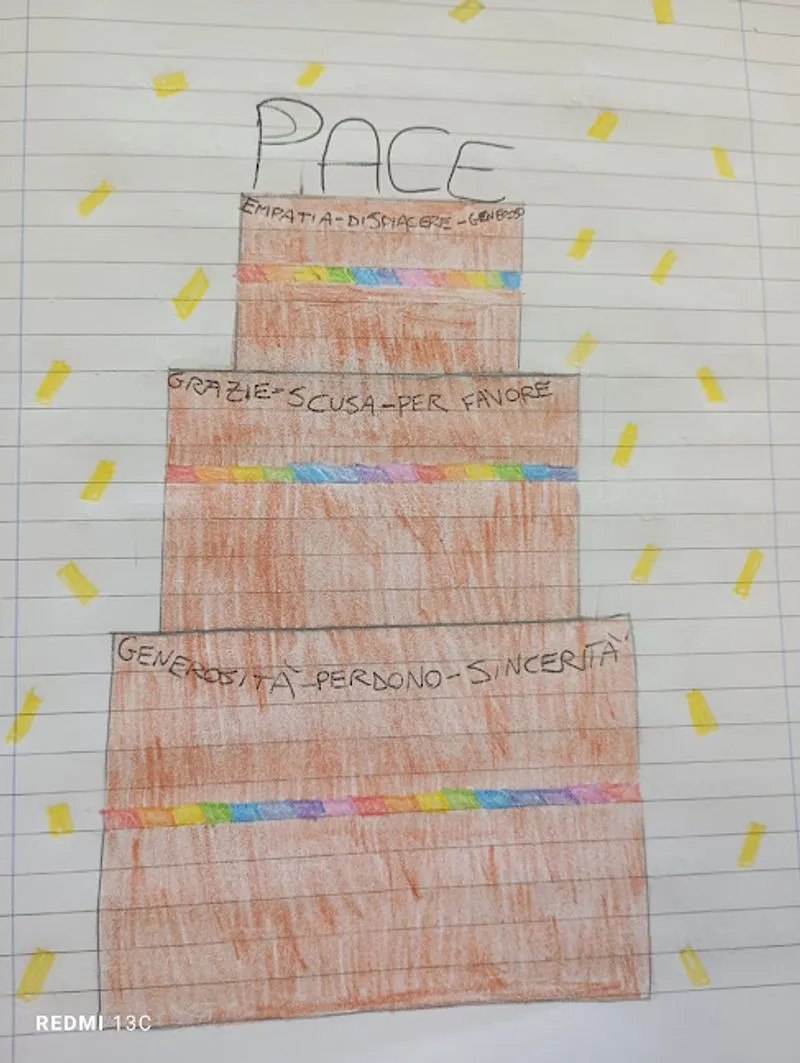 PACE
EMPATIA-DISPIACERE-GENEROSO
GRAZIE-SCUSA-PER FAVORE
GENEROSITÀ-PERDONO-SINCERITÀ
REDMI 13C